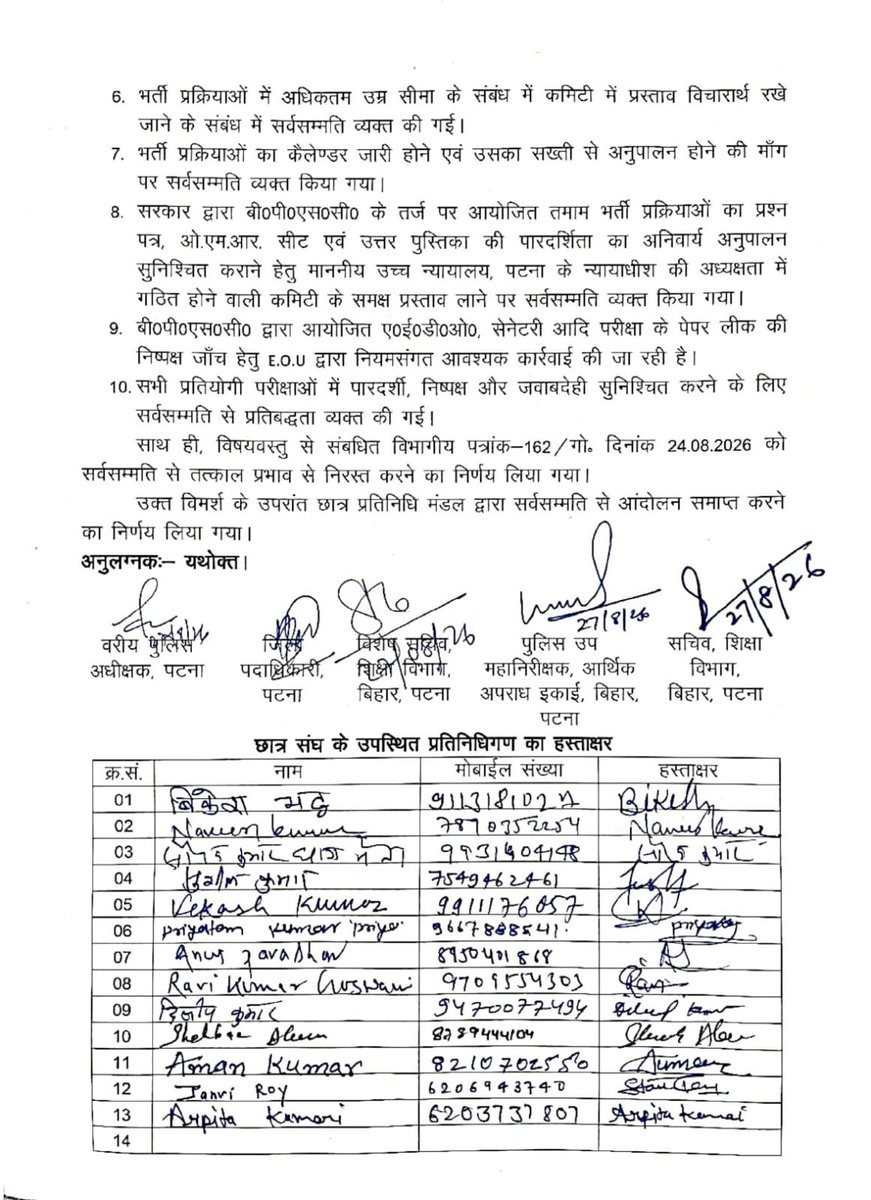 6. भर्ती प्रक्रियाओं में अधिकतम उम्र सीमा के संबंध में कमिटी में प्रस्ताव विचारार्थ रखे
जाने के संबंध में सर्वसम्मति व्यक्त की गई।
7. भर्ती प्रक्रियाओं का कैलेण्डर जारी होने एवं उसका सख्ती से अनुपालन होने की माँग
पर सर्वसम्मति व्यक्त किया गया।
8. सरकार द्वारा बी0पी0एस0सी0 के तर्ज पर आयोजित तमाम भर्ती प्रक्रियाओं का प्रश्न
पत्र, ओ.एम.आर. सीट एवं उत्तर पुस्तिका की पारदर्शिता का अनिवार्य अनुपालन
सुनिश्चित कराने हेतु माननीय उच्च न्यायालय, पटना के न्यायाधीश की अध्यक्षता में
गठित होने वाली कमिटी के समक्ष प्रस्ताव लाने पर सर्वसम्मति व्यक्त किया गया।
9. बी0पी0एस0सी0 द्वारा आयोजित ए0ई0डी0ओ0, सेनेटरी आदि परीक्षा के पेपर लीक की
निष्पक्ष जाँच हेतु E.O.U द्वारा नियमसंगत आवश्यक कार्रवाई की जा रही है।
10. सभी प्रतियोगी परीक्षाओं में पारदर्शी, निष्पक्ष और जवाबदेही सुनिश्चित करने के लिए
सर्वसम्मति से प्रतिबद्धता व्यक्त की गई।
साथ ही, विषयवस्तु से संबधित विभागीय पत्रांक–162/गो० दिनांक 24.08.2026 को
सर्वसम्मति से तत्काल प्रभाव से निरस्त करने का निर्णय लिया गया।
उक्त विमर्श के उपरांत छात्र प्रतिनिधि मंडल द्वारा सर्वसम्मति से आंदोलन समाप्त करने
का निर्णय लिया गया।
अनुलग्नकः– यथोक्त।
27/8/26 27/8/26
वरीय पुलिस जिला विशेष सचिव, पुलिस उप सचिव, शिक्षा
अधीक्षक, पटना पदाधिकारी, शिक्षा विभाग, महानिरीक्षक, आर्थिक विभाग,
पटना बिहार, पटना अपराध इकाई, बिहार, बिहार, पटना
पटना
छात्र संघ के उपस्थित प्रतिनिधिगण का हस्ताक्षर
क्र.सं. नाम मोबाईल संख्या हस्ताक्षर
01 Bikesh
02 Naveen Kumar
03 कुमार 9931404148 कुमार
04 कुमार 7549462461
05 Vekash Kumar 9911176057
06 Priyatam Kumar Priya priyatam
07
08 Ravi Kumar Goswami 9709554303 Ravi
09 दिलीप कुमार 9470077494 Dilip
10 8789444104
11 Aman Kumar 8210702550
12 Janvi Roy 6206943740
13 Arpita Kumari 6203737807 Arpita Kumari
14